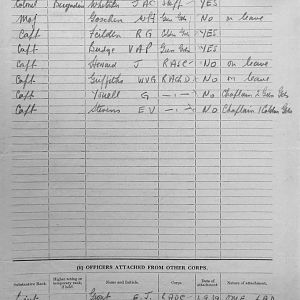 Colonel Brigadier Whiteley J AC Staff YES
Maj Goschen Gds NO on leave
Capt Feilden R G Gds YES
Capt Budge V A P Gren Gds YES
Capt Steward J RASC NO on leave
Capt Griffiths W V G RAChD NO on leave
Capt Youell G —"— NO Chaplain 2 Gren Gds
Capt Stevens E V —"— NO Chaplain 1 Gds
(b) OFFICERS ATTACHED FROM OTHER CORPS.
Substantive Rank. Higher acting or temporary rank, if held. Name and Initials. Corps. Date of attachment. Nature of attachment.
Lieut Grout E. J. RAOC